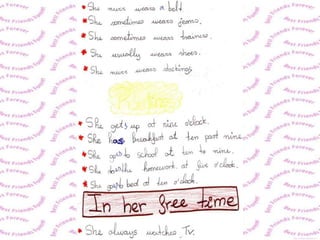 She never wears a belt
She sometimes wears jeans.
She sometimes wears trainers.
She usually wears shoes.
She never wears stockings
She gets up at nine o'clock.
She has breakfast at ten past nine.
She goes to school at ten to nine.
She does the homework at five o'clock.
She goes to bed at ten o'clock.
In her free time
She always watches Tv.
Best Friends Forever